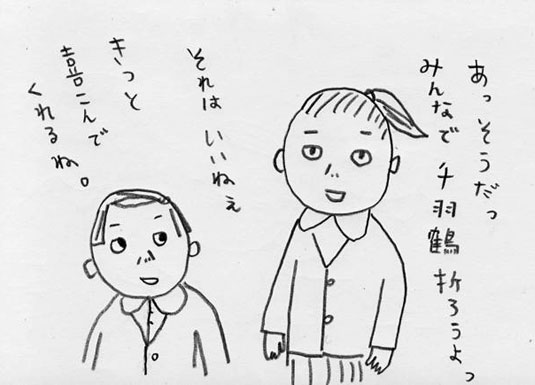 あっそうだっ
みんなで千羽鶴折ろうよっ
それはいいねぇ
きっと
喜こんで
くれるね。